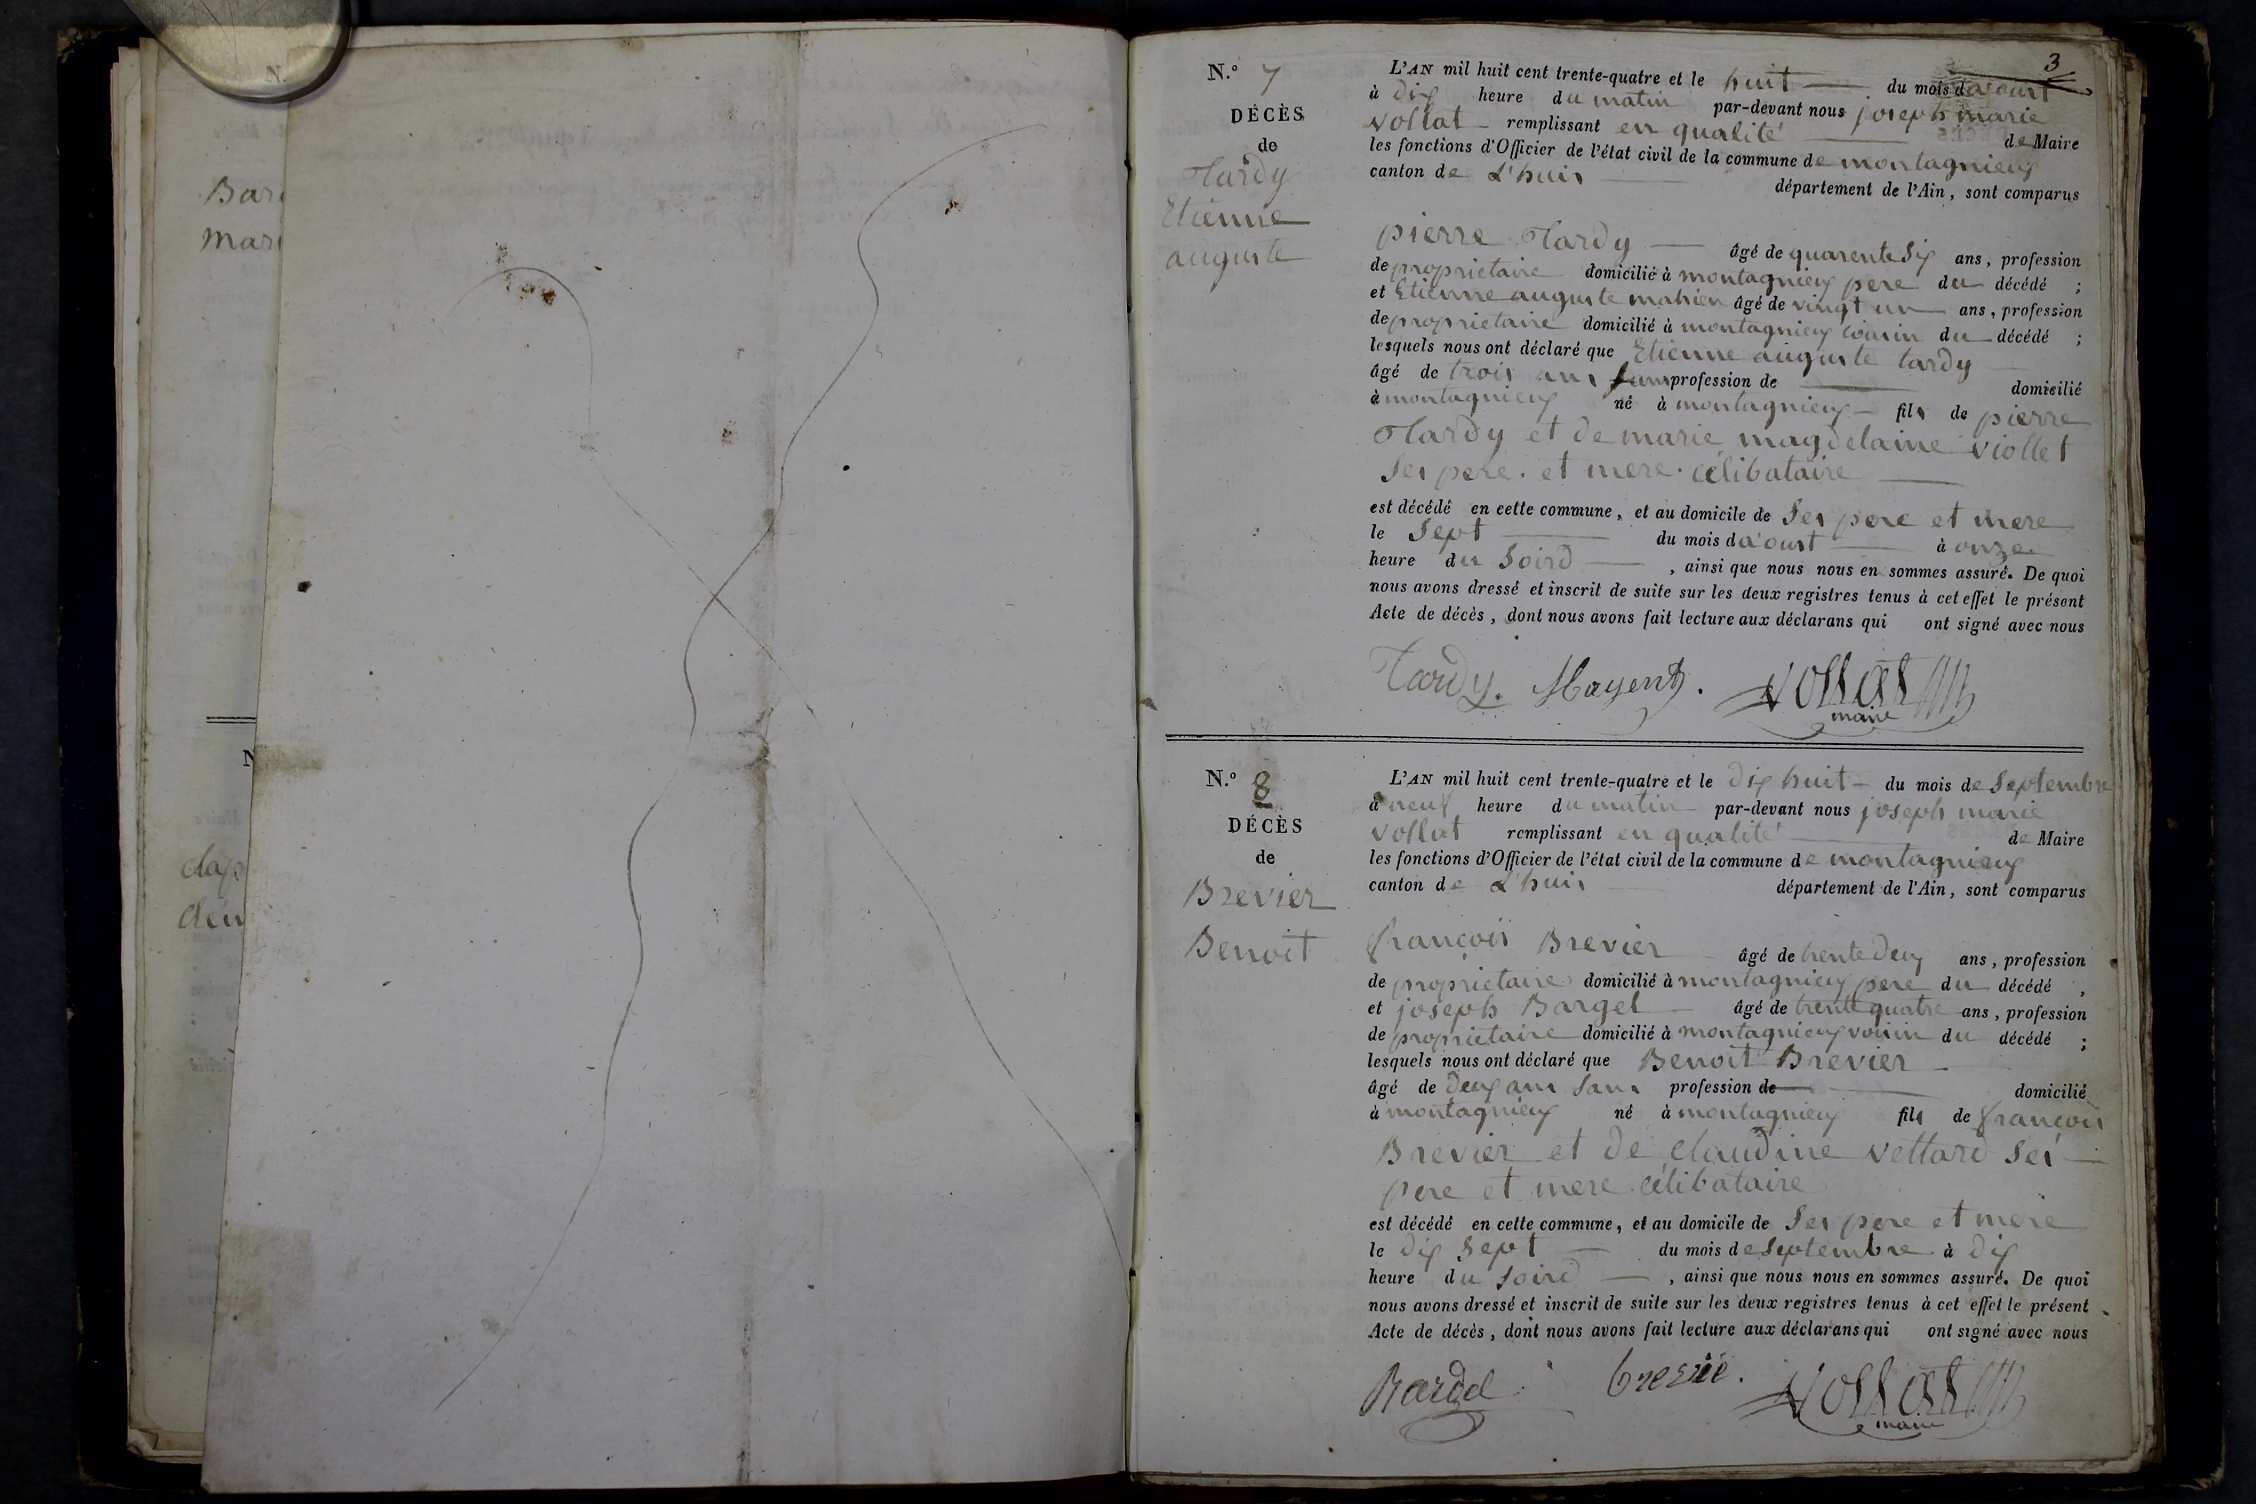 N.
Bar
Mar
N
clap
3
N.° 7
DÉCÈS
de
Tardy
Etienne
auguste
L'AN mil huit cent trente-quatre et le huit du mois d'aoust
à dix heure du matin par-devant nous joseph marie
vollat remplissant en qualité de Maire
les fonctions d'Officier de l'état civil de la commune de montagnieux
canton de L'huis département de l'Ain, sont comparus
pierre Tardy âgé de quarente Six ans, profession
de proprietaire domicilié à montagnieux pere du décédé ;
et Etienne auguste âgé de vingt un ans, profession
de proprietaire domicilié à montagnieux cousin du décédé ;
lesquels nous ont déclaré que Etienne auguste tardy
âgé de trois ans sans profession de domicilié
à montagnieux né à montagnieux fils de pierre
Tardy et de marie magdelaine viollet
Ses pere et mere célibataire
est décédé en cette commune, et au domicile de Ses pere et mere
le Sept du mois d'aoust à onze
heure du Soird , ainsi que nous nous en sommes assuré. De quoi
nous avons dressé et inscrit de suite sur les deux registres tenus à cet effet le présent
Acte de décès, dont nous avons fait lecture aux déclarans qui ont signé avec nous
Tardy. vollat
maire
N.° 8
DÉCÈS
de
Brevier
Benoit
L'AN mil huit cent trente-quatre et le dix huit du mois de Septembre
à neuf heure du matin par-devant nous joseph marie
vollat remplissant en qualité de Maire
les fonctions d'Officier de l'état civil de la commune de montagnieux
canton de L'huis département de l'Ain, sont comparus
françois Brevier âgé de trente deux ans, profession
de proprietaire domicilié à montagnieux pere du décédé ,
et joseph Bargel âgé de trente quatre ans, profession
de proprietaire domicilié à montagnieux voisin du décédé ;
lesquels nous ont déclaré que Benoit Brevier
âgé de deux ans Sans profession de domicilié
à montagnieux né à montagnieux fils de françois
Brevier et de claudine vettard Ses
pere et mere célibataire
est décédé en cette commune, et au domicile de Ses pere et mere
le dix Sept du mois de Septembre à dix
heure du Soird , ainsi que nous nous en sommes assuré. De quoi
nous avons dressé et inscrit de suite sur les deux registres tenus à cet effet le présent
Acte de décès, dont nous avons fait lecture aux déclarans qui ont signé avec nous
vollat
maire